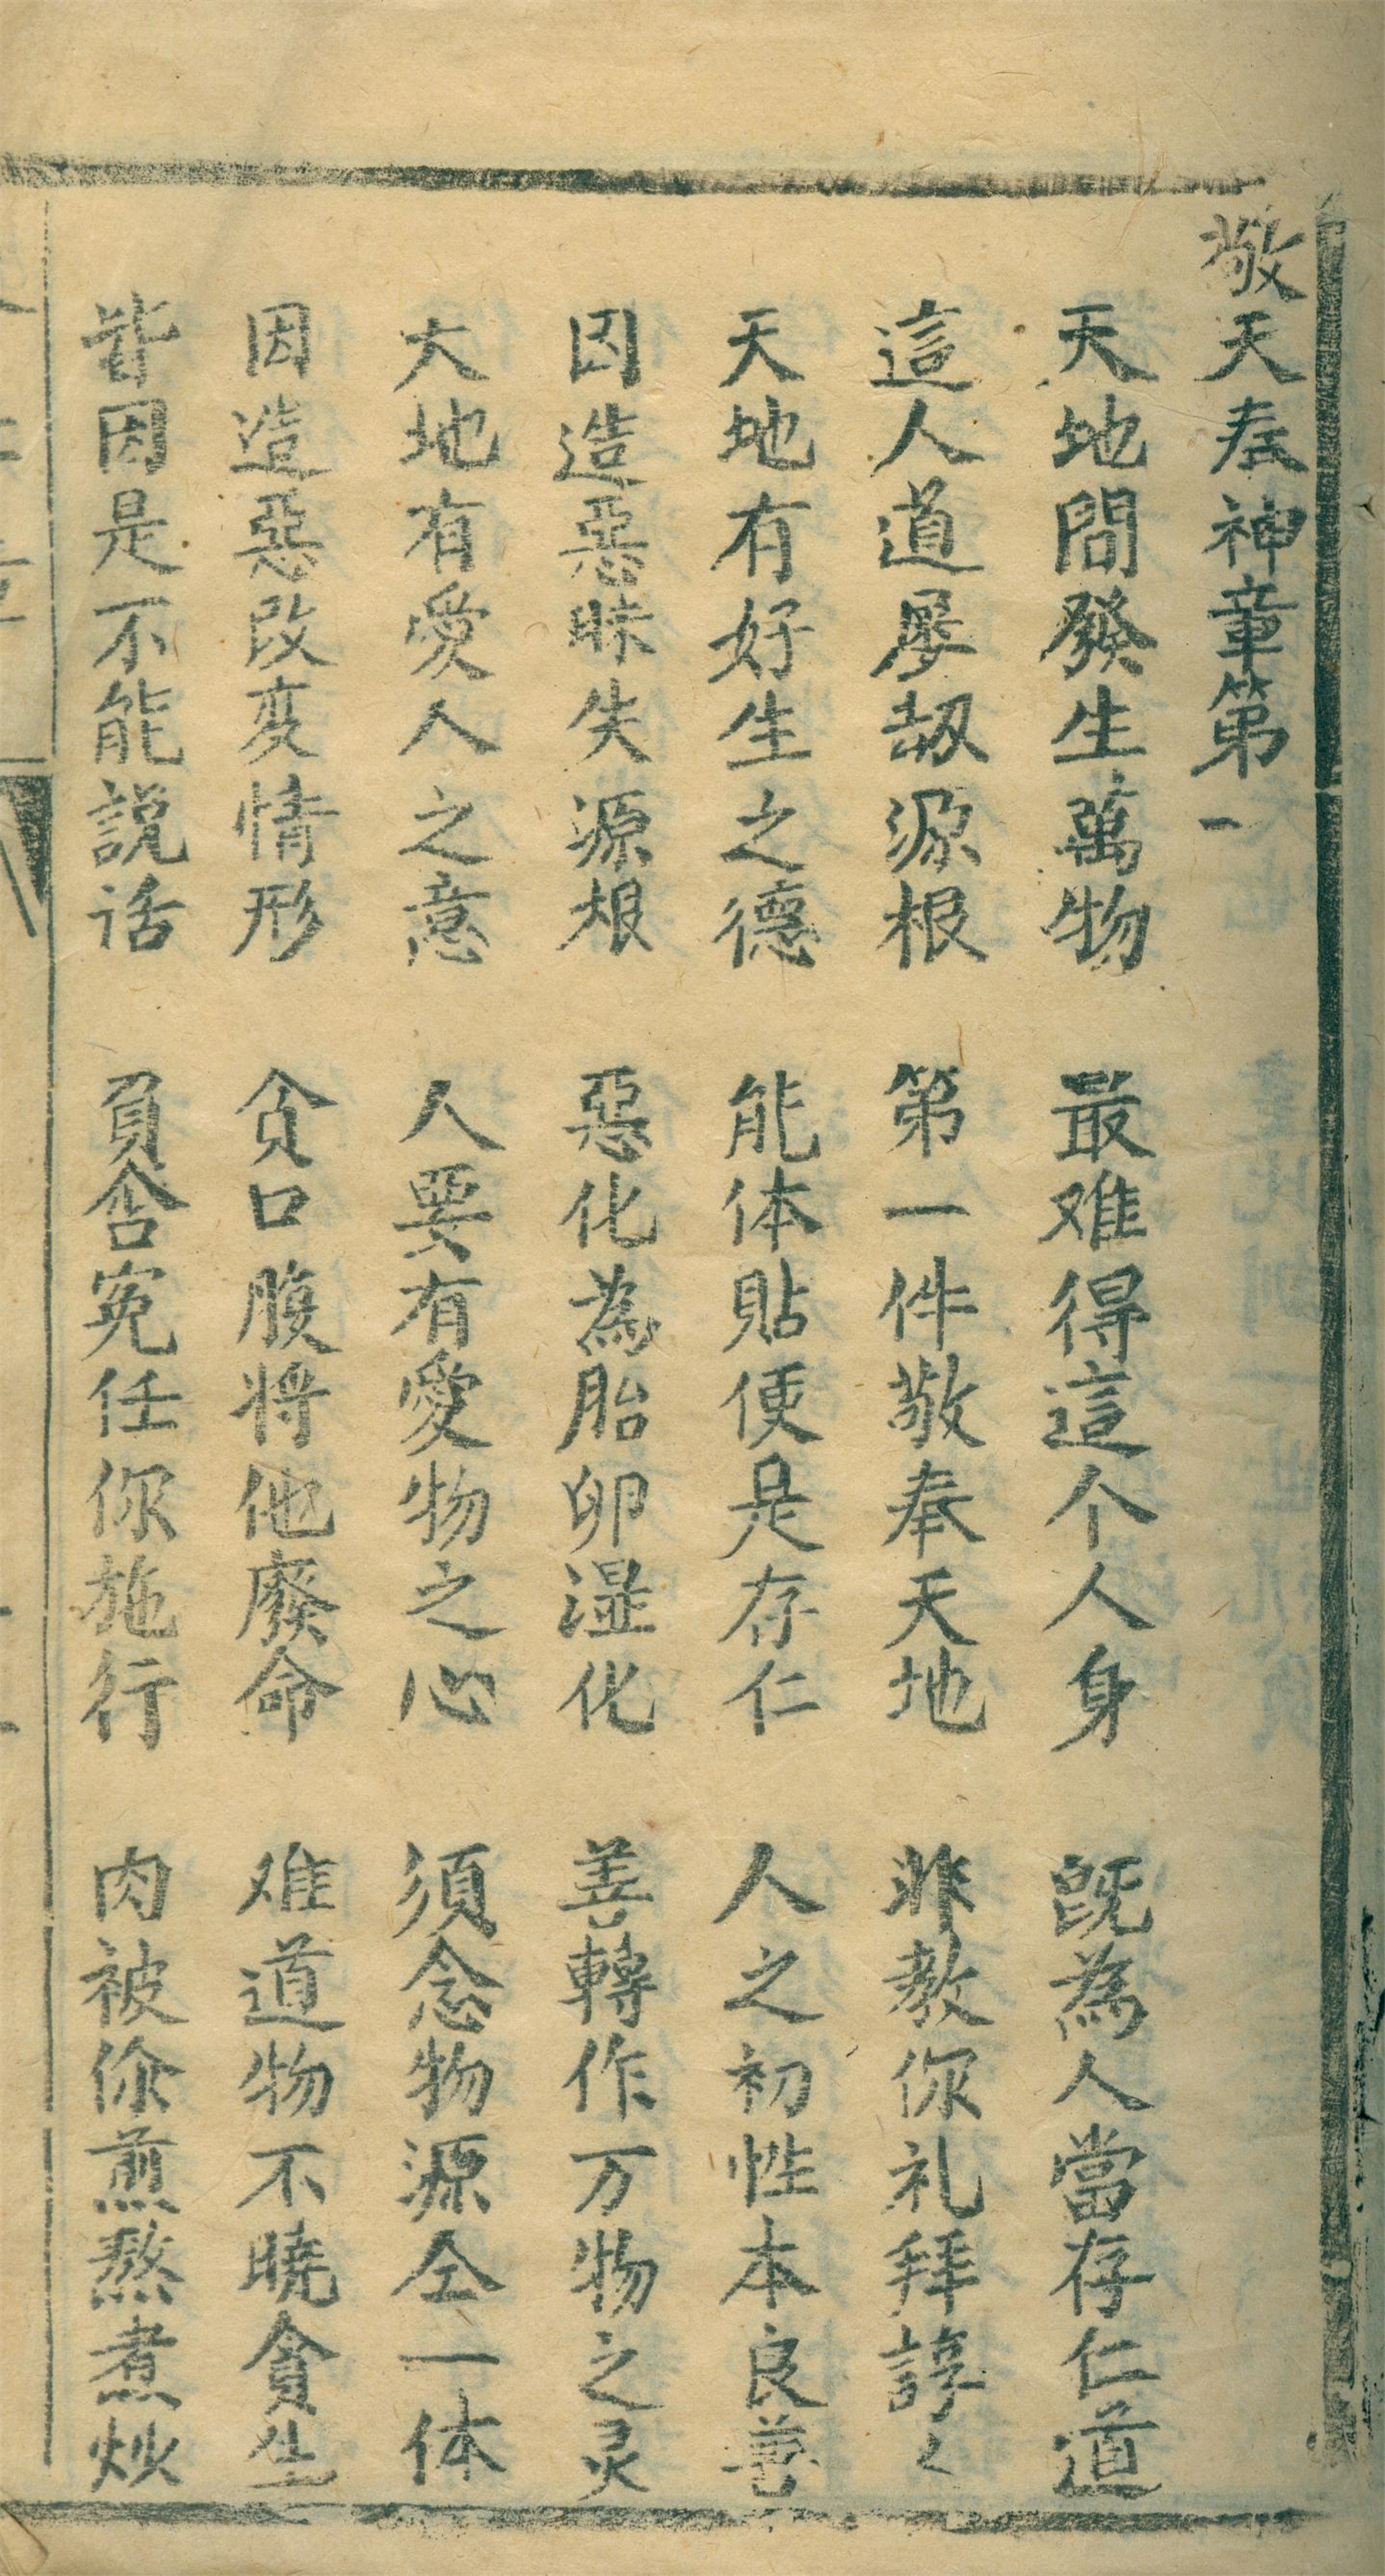 敬天奉神章第一
天地間發生萬物　最难得這个人身　既為人當存仁道
這人道屡刼源根　第一件敬奉天地　非教你礼拜諄〻
天地有好生之德　能体貼便是存仁　人之初性本良善
因造惡昧失源根　惡化為胎卵湿化　善轉作万物之灵
大地有愛人之意　人要有愛物之心　須念物源仝一体
因造惡改变情形　贪口腹将他廢命　难道物不曉貪生
皆因是不能説话　負含寃任你施行　肉被你煎熬煮炒